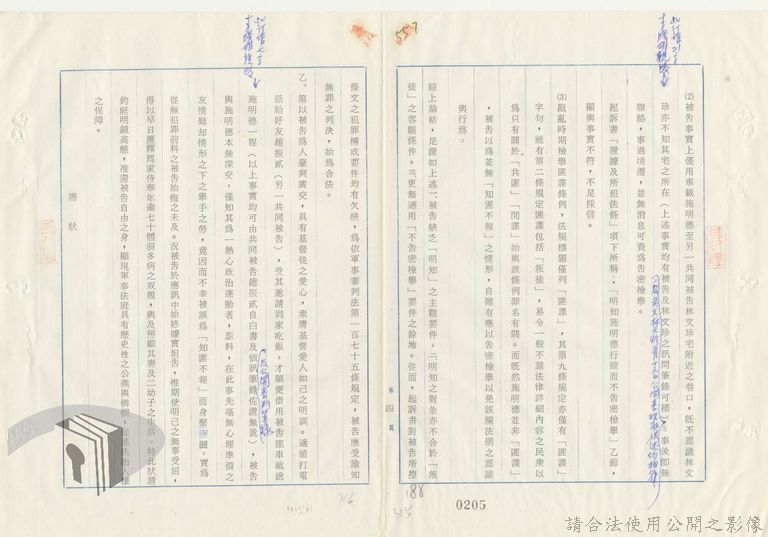 557
(2)被告事實上僅用車載施明德至另一共同被告林文珍宅附近之巷口，旣不認識林文
珍亦不知其宅之所在（上述事實均有被告及林文珍之訊問筆錄可稽），事後即無
聯絡，事過境遷，並無消息可資爲告密檢擧。
起訴書「證據及所犯法條」項下所稱：「明知施明德行蹤而不告密檢擧」乙節，
顯與事實不符，不足採信。
(3)戡亂時期檢擧匪諜條例，法規標題僅列「匪諜」，其第九條規定亦僅有「匪諜」
字句，雖有第二條規定匪諜包括「叛徒」，易令一般不諳法律詳細內容之民衆以
爲只有關於「共匪」「間諜」始與該條例罪名有關。而旣然施明德並非「匪諜」
，被告以爲並無「知匪不報」之情形，自難有應以告密檢擧以免誤觸法網之認識
與行爲。
綜上論結，足證如上述㈠被告缺乏「明知」之主觀要件。㈡明知之對象亦不合於「叛
徒」之客觀條件。㈢更無適用「不告密檢擧」要件之餘地。從而，起訴書對被告所控
第四頁
條文之犯罪構成要件均有欠缺，爲依軍事審判法第一百七十五條規定，被告應受諭知
無罪之判決，始爲合法。
乙、第以被告爲人豪爽廣交，具有基督徒之愛心，素膺基督愛人如己之明訓。適値打電
話給好友趙振貳（另一共同被告），受其邀請到家吃飯。才順便借用被告座車載送
施明德一程（以上事實均可由共同被告趙振貳自白書及偵訊筆錄佐證無訛），被告
與施明德本無深交，僅知其爲一熱心政治運動者，詎料，在此事先毫無心理準備之
友情難却情形之下之擧手之勞，竟因而不幸被誤爲「知匪不報」而身繫囹圄，實爲
從無犯罪前科之被告始悔之未及。況被告於應訊中始終據實坦告，惟期使明己之無辜受屈，
得以早日獲釋囘家侍奉年逾七十體弱多病之双親，與及照顧其妻及二幼子之生活。特此狀請
鈞庭明鏡高懸，准還被告自由之身，顯現軍事法庭具有歷史性之公義與
之保障。
謹狀
188
315
0205
316
請合法使用公開之影像